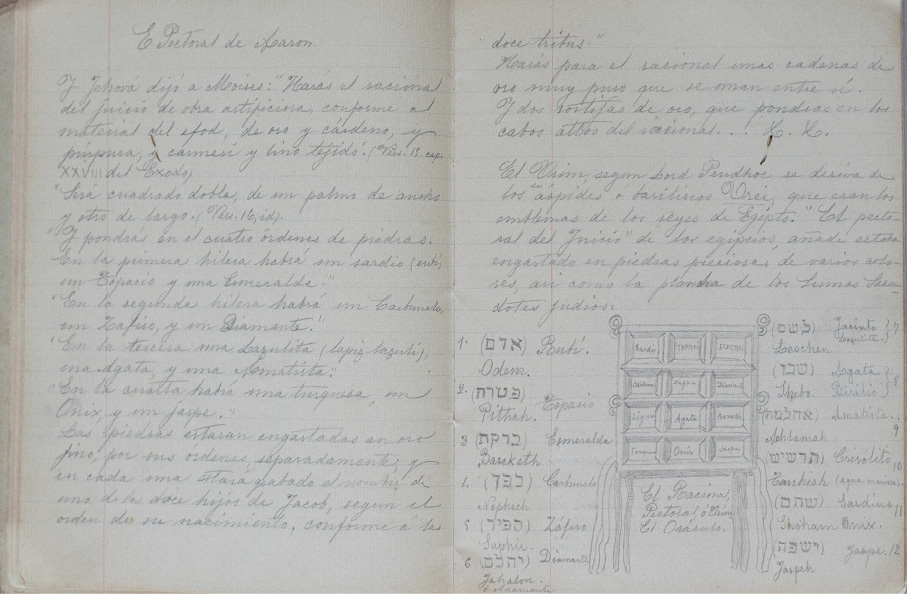 El Pectoral de Aaron
Y Jehová dijo a Moises: "Harás el racional
del juicio de obra artificiosa, conforme al
material del efod, de oro y cárdeno, y
púrpura, y carmesí y lino tejido". (Vers. 15 cap.
XXVIII del Exodo)
"Será cuadrado doble, de un palmo de ancho
y otro de largo. (Vers. 16, id).
"Y pondrás en el cuatro órdenes de piedras.
En la primera hilera habrá un sardio
un Topacio y una Esmeralda."
"En la segunda hilera habrá un Carbunclo,
un Zafiro, y un Diamante."
"En la tercera una Lazulita (lapiz lazuli),
una Agata, y una Amatista."
"En la cuarta habrá una turquesa, un
Onix y un jaspe."
Las piedras estaran engartadas en oro
fino, por sus ordenes, separadamente, y
en cada una estará gabado el nombre de
uno de los doce hijos de Jacob, segun el
orden de su nacimiento, conforme á las
doce tribus."
Harás para el racional unas cadenas de
oro muy puro que se unan entre sí.
Y dos sortijas de oro, que pondras en los
cabos altos del racional...
El Urim, segun Lord Prudhoe se deriva de
los áspides ó basiliscos Urei, que eran los
emblemas de los reyes de Egipto. "El pecto-
ral del Juicio" de los egipcios, añade estaba
engartado en piedras preciosas de varios colo-
res, asi como la plancha de los Sumos Sacer-
dotes judios.
1. (אדם) Rubí.
Odem.
2. (פטרת) Topacio
Pithah.
3 (ברקת) Esmeralda
Bareketh
4. (נפך) Carbunclo
Nophech
5 (ספיר) Záfiro
Saphir.
6 (יהלם) Diamante
Jahalon.
ó adamante
Sardio Topacio
Zafiro Diamante
Ligur Agata Amatis
Turques Onix Jaspe
El Racional,
Pectoral, ó Urim
El Oráculo.
(לשם) Jacinto 7
Lazulita.
Leschen
(שבו) Agata 8
Shebo. Berilio
(אחלמה) Amatista. 9
Achlamah
(תרשיש) Crisolito 10
Tarshish (agua marina)
(שהם) Sardius 11
Shoham Onix.
(ישפה) Jaspe. 12
Jaspeh